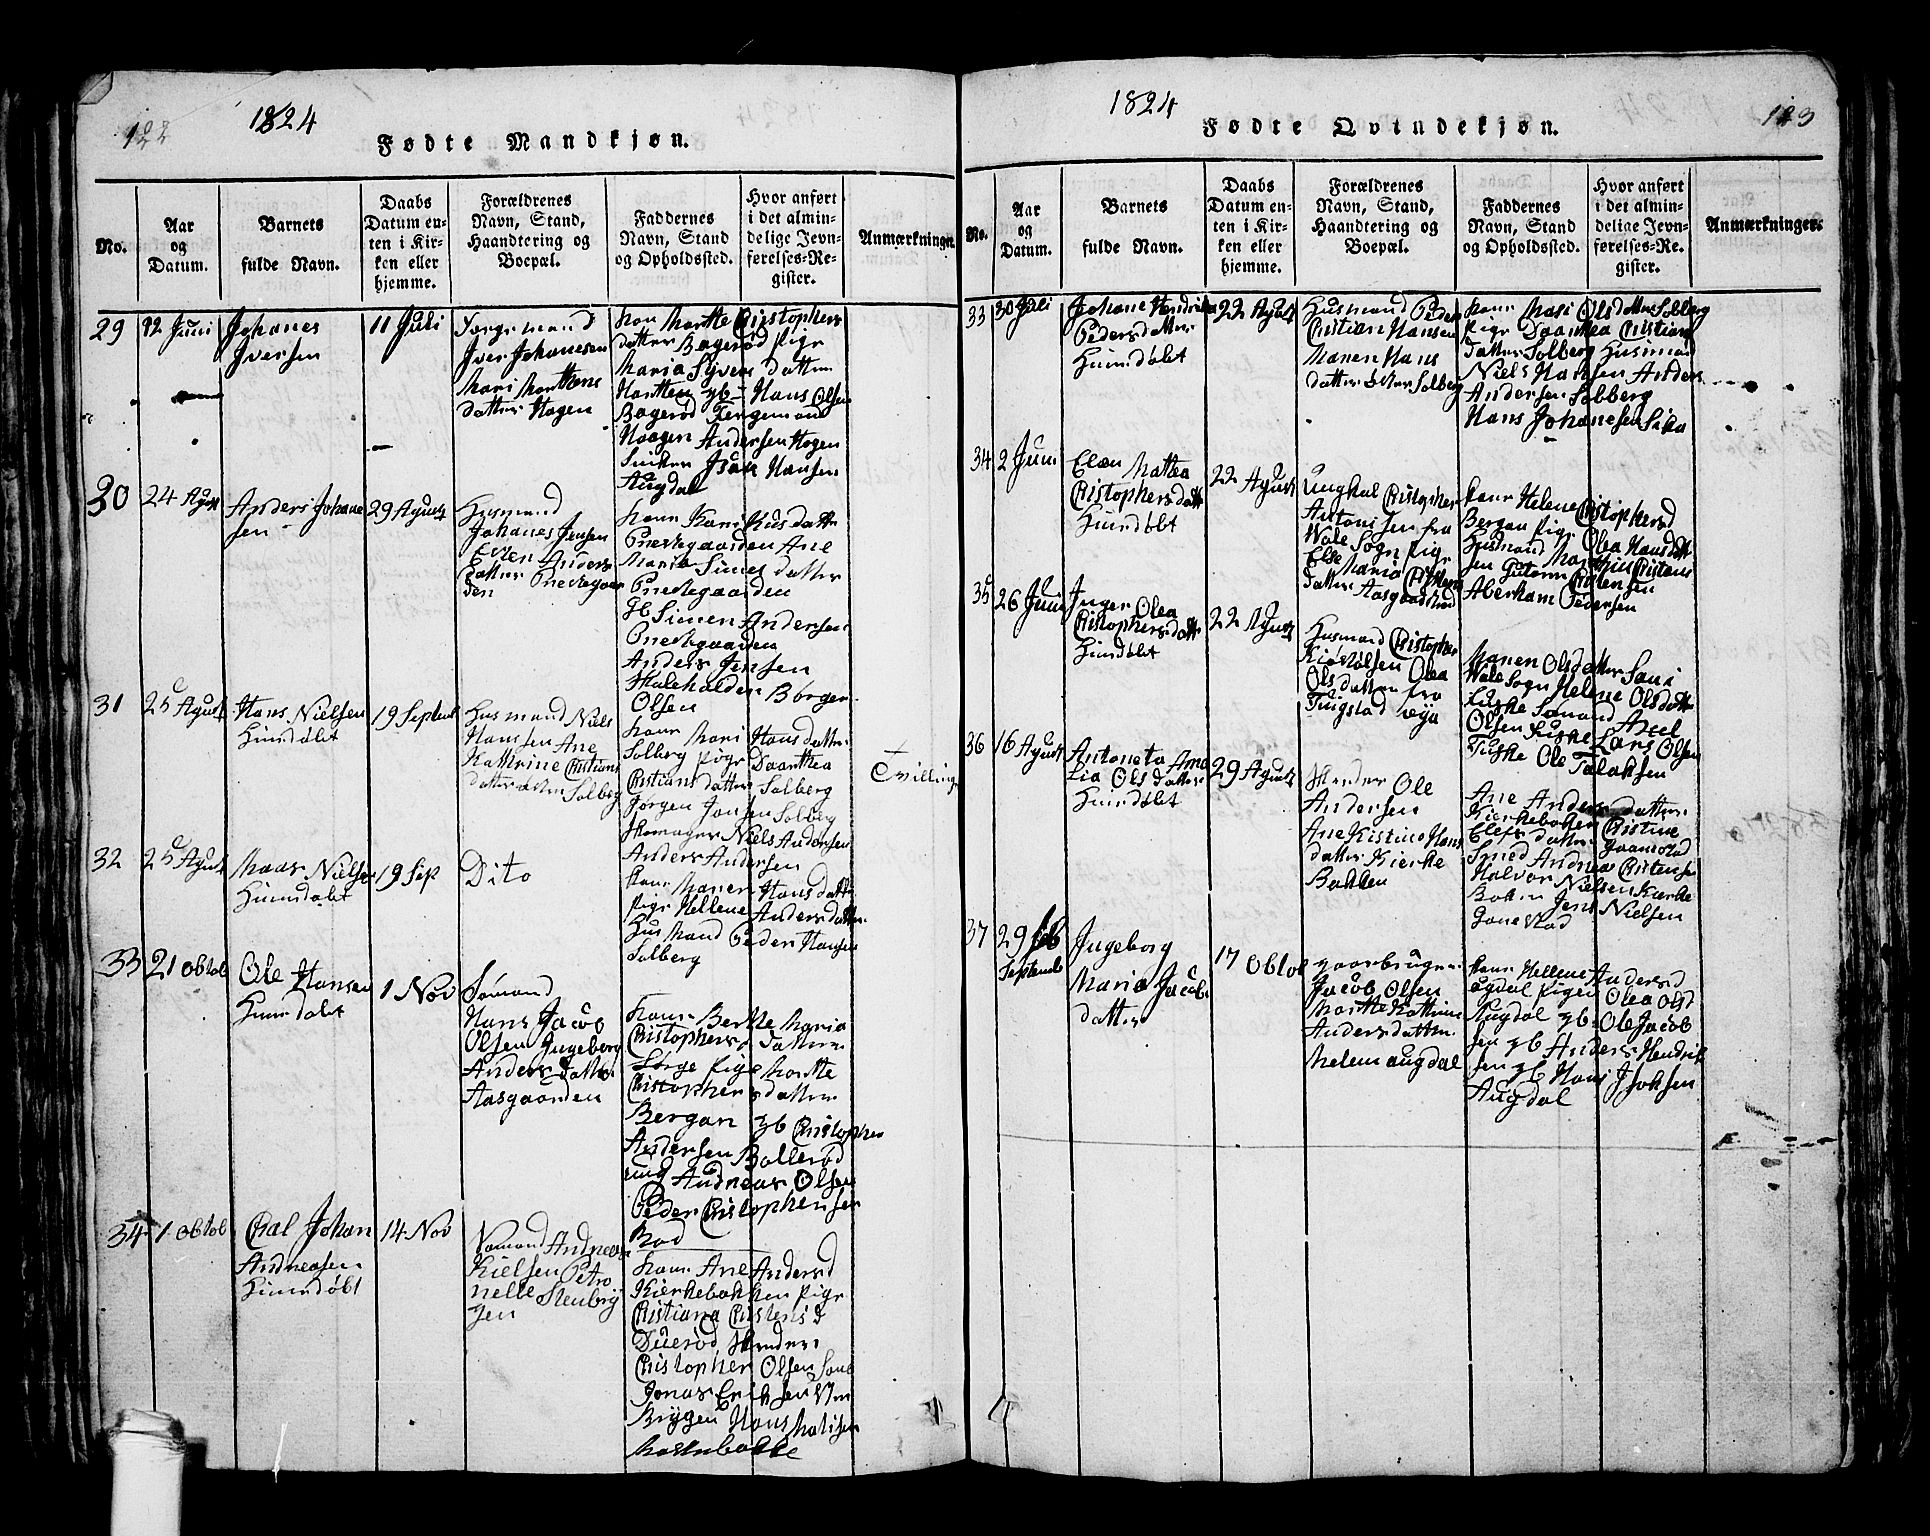 122
1824
Fødte Mandkjøn.
No.
Aar
og
Datum.
Barnets
fulde Navn.
Daabs
Datum en-
ten i Kir-
ken eller
hjemme.
Forældrenes
Navn, Stand,
Haandtering og
Boepæl.
Faddernes
Navn, Stand
og Opholdssted.
Hvor anført
i det almin-
delige Jevn-
førelses-Re-
gister.
Anmærkninger.
29
12 Juni
Johanes
Iversen
11 Juli
Færgemand
Iver Johanesen
Mari Morttens
datter Hagen
kone Martte Cristophers
datter Bagerød Pige
Maria Syvers datter
gb Hans Olsen
Bagerød Fergemand
Haagen Andersen Hogen
Isak Hansen
Augdal
30
24 Agust
Anders Johane
sen
29 Agust
Husmand
Johanes Jensen
Even Anders
datter Prestegaar
den
kone Kari datter
Prestegaarden Ane
Maria Simes datter
Prestegaarden
Simen Andersen
Prestegaarden
Anders Jensen
Skoleholder Børger
Olsen
31
25 Agust
Hans Nielsen
Himdøbt
19 Septemb
Husmand Niels
Hanssen Ane
Kathrine Cristians
datter Solberg
kone Mari Hans datter
Solberg pige Daarthea
Cristians datter Solberg
Jørgen Jonsen Solberg
Skomager Niels Andersen
Anders Andersen
Tvilling
32
25 Agust
Maas Nielsen
Himdøbt
19 Sep
Dito
kone Maren Hans datter
pige Hellene Anders datter
Husmand Peder Hansen
Solberg
33
21 Obtob
Ole Hansen
Himdøbt
1 Nov
Sømand
Hans Jacob
Olsen Ingeborg
Anders datter
Aasgaarden
kone Berthe Maria
Cristophers datter
Sørge Pige Martte
Cristophers datter
Bergan gb Cristopher
Andersen Bollerød
ung Andreas Olsen
Peder Cristophersen
Rød
34
1 Obtob
Cal Johan
Andreasen
Himdøbt
14 Nov
Sømand Andreas
Kielsen Petro
nelle Stenbry
gen
kone Ane Andersd
Kierkebakken Pige
Cristiana Cristensd
Duerød
Cristopher Olsen
Jonas Eriksen
Bryggen Hans Matisen

1824
123
Fødte Qvindekjøn.
No.
Aar
og
Datum.
Barnets
fulde Navn.
Daabs
Datum en-
ten i Kir-
ken eller
hjemme.
Forældrenes
Navn, Stand,
Haandtering og
Boepæl.
Faddernes
Navn, Stand
og Opholdssted.
Hvor anført
i det almin-
delige Jevn-
førelses-Re-
gister.
Anmærkninger.
33
30 Juli
Johane Hendrika
Peders datter
Himdøbt
22 Agust
Husmand Peder
Cristian Hansen
Maren Hans
datter Solberg
kone Mari Olsdatter Solberg
Pige Daarthea Cristians
datter Solberg Husmand
Niels Hansen Anders
Andersen Solberg
Hans Johanesen
34
2 Juni
Elen Mattea
Cristophers datt
Himdøbt
22 Agust
Ungkal Cristopher
Antonisen fra
Wale Sogn Pige
Else Maria Cristens
datter Aasgaardstrand
kone Helene Cristophersd
Bergan Pige Olea Hansdatt
Husmand Cristens
sen Gutorm Cristensen
Aberham Pedersen
35
26 Juni
Inger Olea
Cristophers datt
Himdøbt
22 Agust
Husmand Cristopher
Kiøstølsen Olea
Ols datter fra
Tingstad eye
Maren Olsdatter
Wale Sogn Helene Olsdatt
Olsen Lars Olsen
Ole Talaksen
36
16 Agust
Antoneta Ama
lia Ols datter
Himdøbt
29 Agust
Ole
Andersen
Ane Kistine Hans
datter Kierke
Bakken
Ane Anders datter
Kierkebaken Cristine
Elefs datter
Smed Andrea Cristensen
Halvor Nielsen Kierke
Baken Jens Nielsen
37
29
Septemb
Ingeborg
Maria Jacobs
datter
17 Obtob
gaarbruger
Jacob Olsen
Martte Kattrine
Anders datter
Melem augdal
kone Hellene Andersd
augdal Pigen Olea Olsd
Augdal gb Ole Jacob
sen gb Anders Hendrik
sen gb Hans Isaksen
Augdal